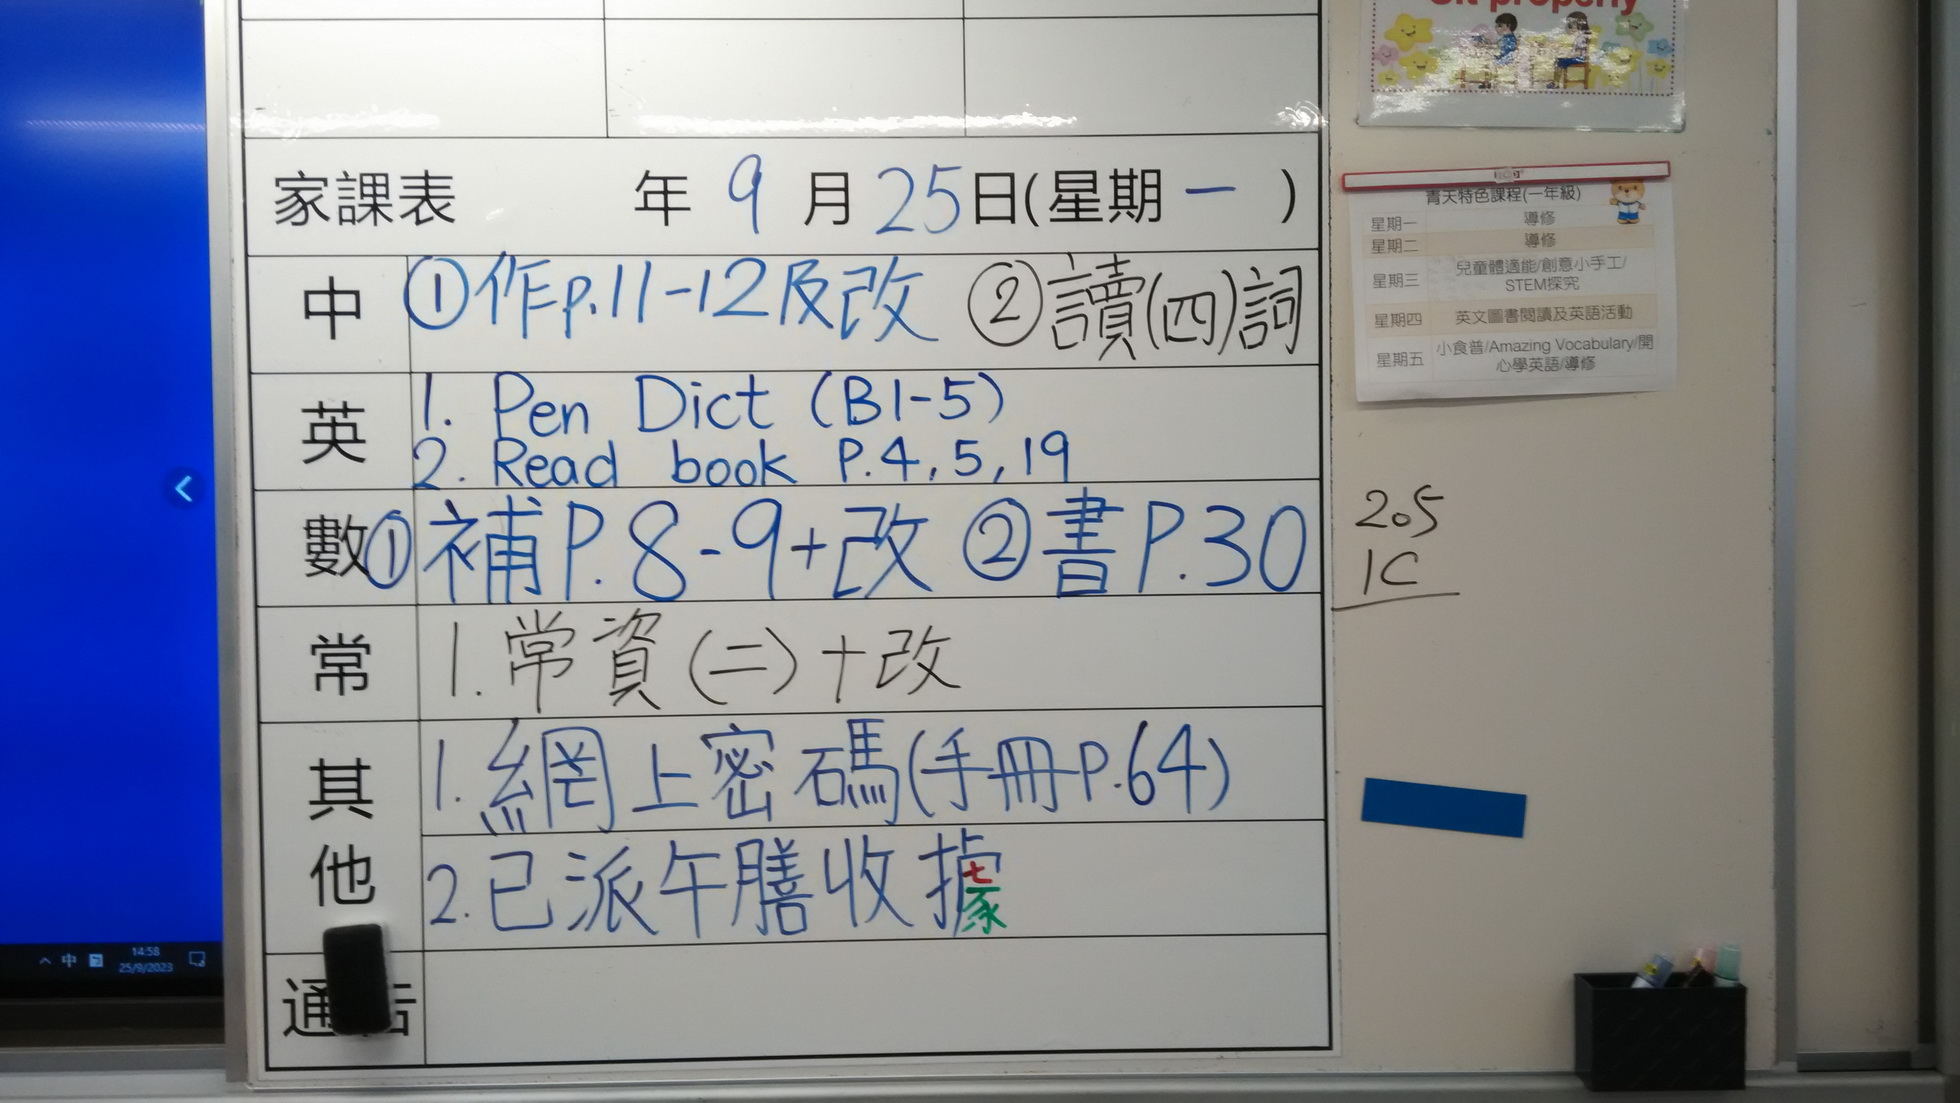 Sit properly
家課表 年 9 月 25 日(星期 一 )
中 ①作p.11-12及改 ②讀(四)詞
英 1. Pen Dict (B1-5)
2. Read book P.4, 5, 19
數 ① 補P.8-9+改 ②書P.30
常 1. 常資(二)+改
其他 1. 網上密碼(手冊P.64)
2. 已派午膳收據
通告
青天特色課程(一年級)
星期一 導修
星期二 導修
星期三 兒童體適能/創意小手工/
STEM探究
星期四 英文圖書閱讀及英語活動
星期五 小食普/Amazing Vocabulary/開
心學英語/導修
205
1C
中
14:58
25/9/2023